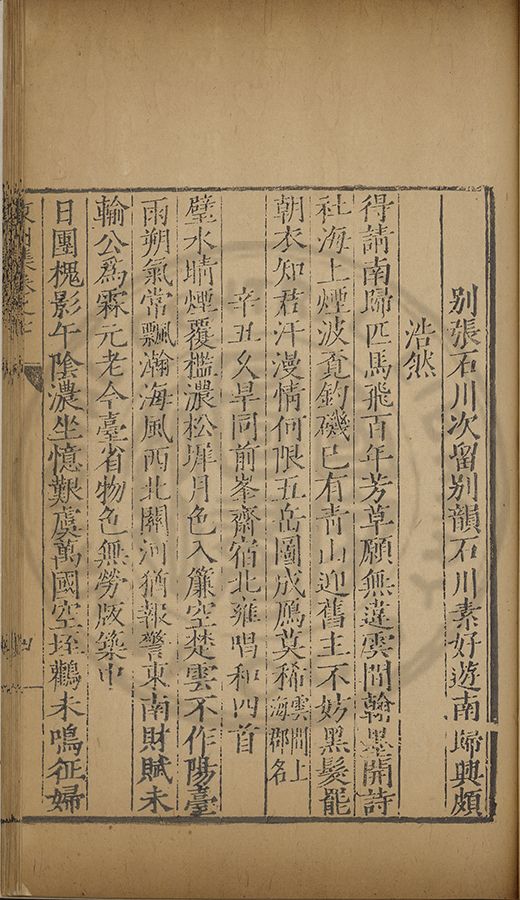 別張石川次留別韻石川素好遊南歸興頗
浩然
得請南歸匹馬飛百年芳草願無違雲間翰墨開詩
社海上煙波覓釣磯已有青山迎舊主不妨黑髮罷
朝衣知君汗漫情何限五岳圖成鴈莫稀雲間上海郡名
辛丑久旱同前峯齋宿北雍唱和四首
璧水晴煙覆檻濃松墀月色入簾空楚雲不作陽臺
雨朔氣常飄瀚海風西北關河猶報警東南財賦未
輸公爲霖元老今臺省物色無勞版築中
日團槐影午陰濃坐憶艱虞萬國空垤鸛未鳴征婦